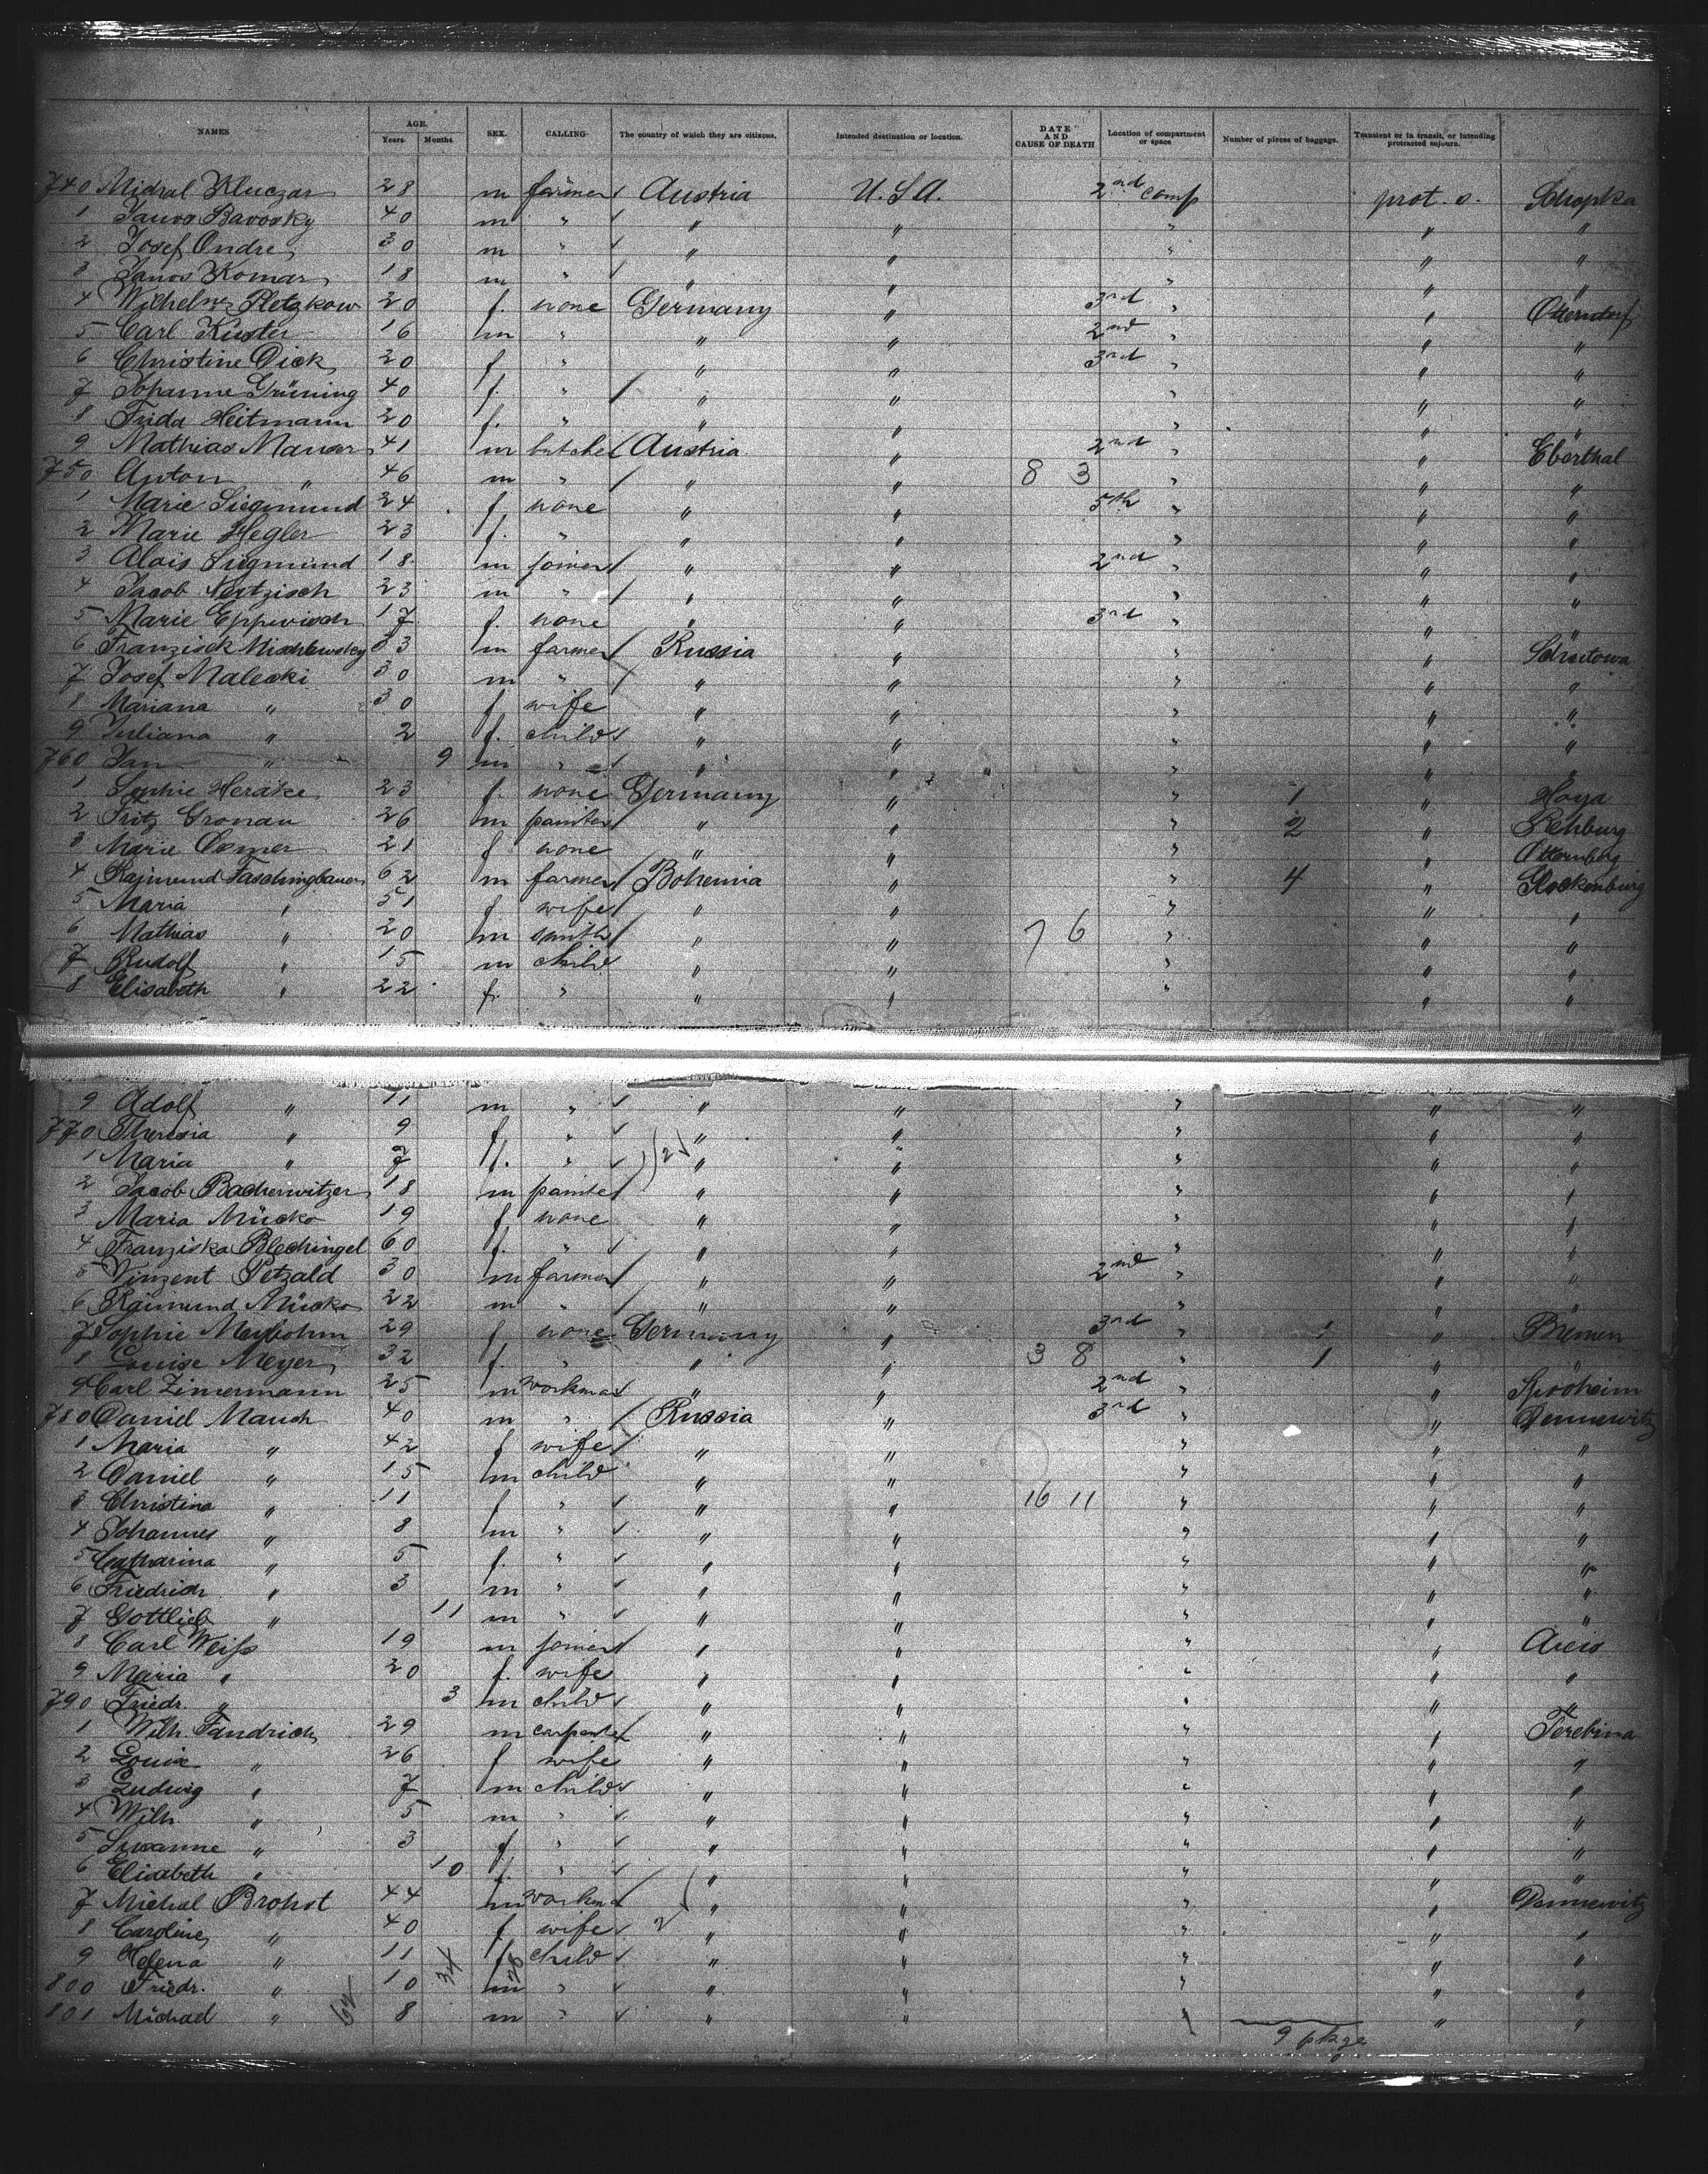 NAMES AGE. Years. Months. SEX. CALLING The country of which they are citizens. Intended destination or location. DATE AND CAUSE OF DEATH Location of compartment or space Number of pieces of baggage. Transient or in transit, or intending protracted sojourn.
740 Michal Kluczar 28 m farmer Austria U.S.A. 2nd comp prot. s.
1 40 m " " " " "  "
2 Josef Ondre 30 m " " " " " "
3 Janos Komar 18 m " " " " " "
4 20 f. none Germany " 3rd " " Otterndorf
5 Carl Küster 16 m " " " 2nd " " "
6 Christine Dick 20 f " " " 3rd " " "
7 Johanne Grüning 40 f. " " " " " "
8 Frida Heitmann 20 f. " " " " " "
9 Mathias Mauser 41 m butcher Austria " 2nd " " Eberthal
750 Anton " 46 m " " " 8 3 " " "
1 Marie Siegmund 24 f. none " " 5th " " "
2 Marie Hegler 23 f. " " " " " "
3 Alois Siegmund 18 m joiner " " 2nd " " "
4 Jacob 23 m " " " " " "
5 Marie 17 f. none " " 3rd " " "
6 Franzisek m farmer Russia " " "
7 Josef Maleski 30 m " " " " " "
8 Mariana " 30 f wife " " " " "
9 Juliana " 2 f. child " " " " "
760 Jan " 9 m " " " " " "
1 Sophie Heräke 23 f. none Germany " " 1 " Hoya
2 Fritz Cronau 26 m painter " " " 2 " Rehburg
3 Marie 21 f none " " " "
4 Rajmund Faschingbauer 62 m farmer Bohemia " " 4 " Glockenburg
5 Maria " 51 f wife " " " " "
6 Mathias " 20 m smith " " 7 6 " " "
7 Rudolf " 15 m child " " " " "
8 Elisabeth " 22 f. " " " " " "
9 Adolf " 11 m " " " " " "
770 Theresia " 9 f " " " " " "
1 Maria " 7 f. " 2 " " " " "
2 Jacob Bacherwitzer 18 m painter " " " " "
3 Maria Mücko 19 f none " " " " "
4 Franziska Blechingel 60 f. " " " " " "
5 Vinzent Petzald 30 m farmer " " 2nd " " "
6 Raimund Mücko 22 m " " " " " "
7 Sophie Meybohm 29 f none Germany " 3rd " 1 " Bremen
8 Louise Meyer 32 f. " " " 3 8 " 1 "
9 Carl Zimermann 25 m workman " " 2nd " "
780 Daniel Mauch 40 m " Russia " 3rd " " Dennewitz
1 Maria " 42 f wife " " " " "
2 Daniel " 15 m child " " " " "
3 Christina " 11 f " " " 16 11 " " "
4 Johannes " 8 m " " " " " "
5 Catharina " 5 f. " " " " " "
6 Friedrich " 3 m " " " " " "
7 Gottlieb " 11 m " " " " " "
8 Carl Weiß 19 m joiner " " " "
9 Maria " 20 f. wife " " " " "
790 Friedr. " 3 m child " " " " "
1 Wilh. Fandrich 29 m carpenter " " " " Terebina
2 Louise " 26 f wife " " " " "
3 Ludwig " 7 m child " " " " "
4 Wilh. " 5 m " " " " " "
5 Susanne " 3 f " " " " " "
6 Elisabeth " 10 f. " " " " " "
7 Michal Brohst 44 m workman " " " " Dennewitz
8 Caroline " 40 f wife 2 " " " " "
9 Helena " 11 f child " " " " "
800 Friedr. " 10 m " " " " " "
801 Michael " 8 m " " " " " "
62 34 28
9 pkge